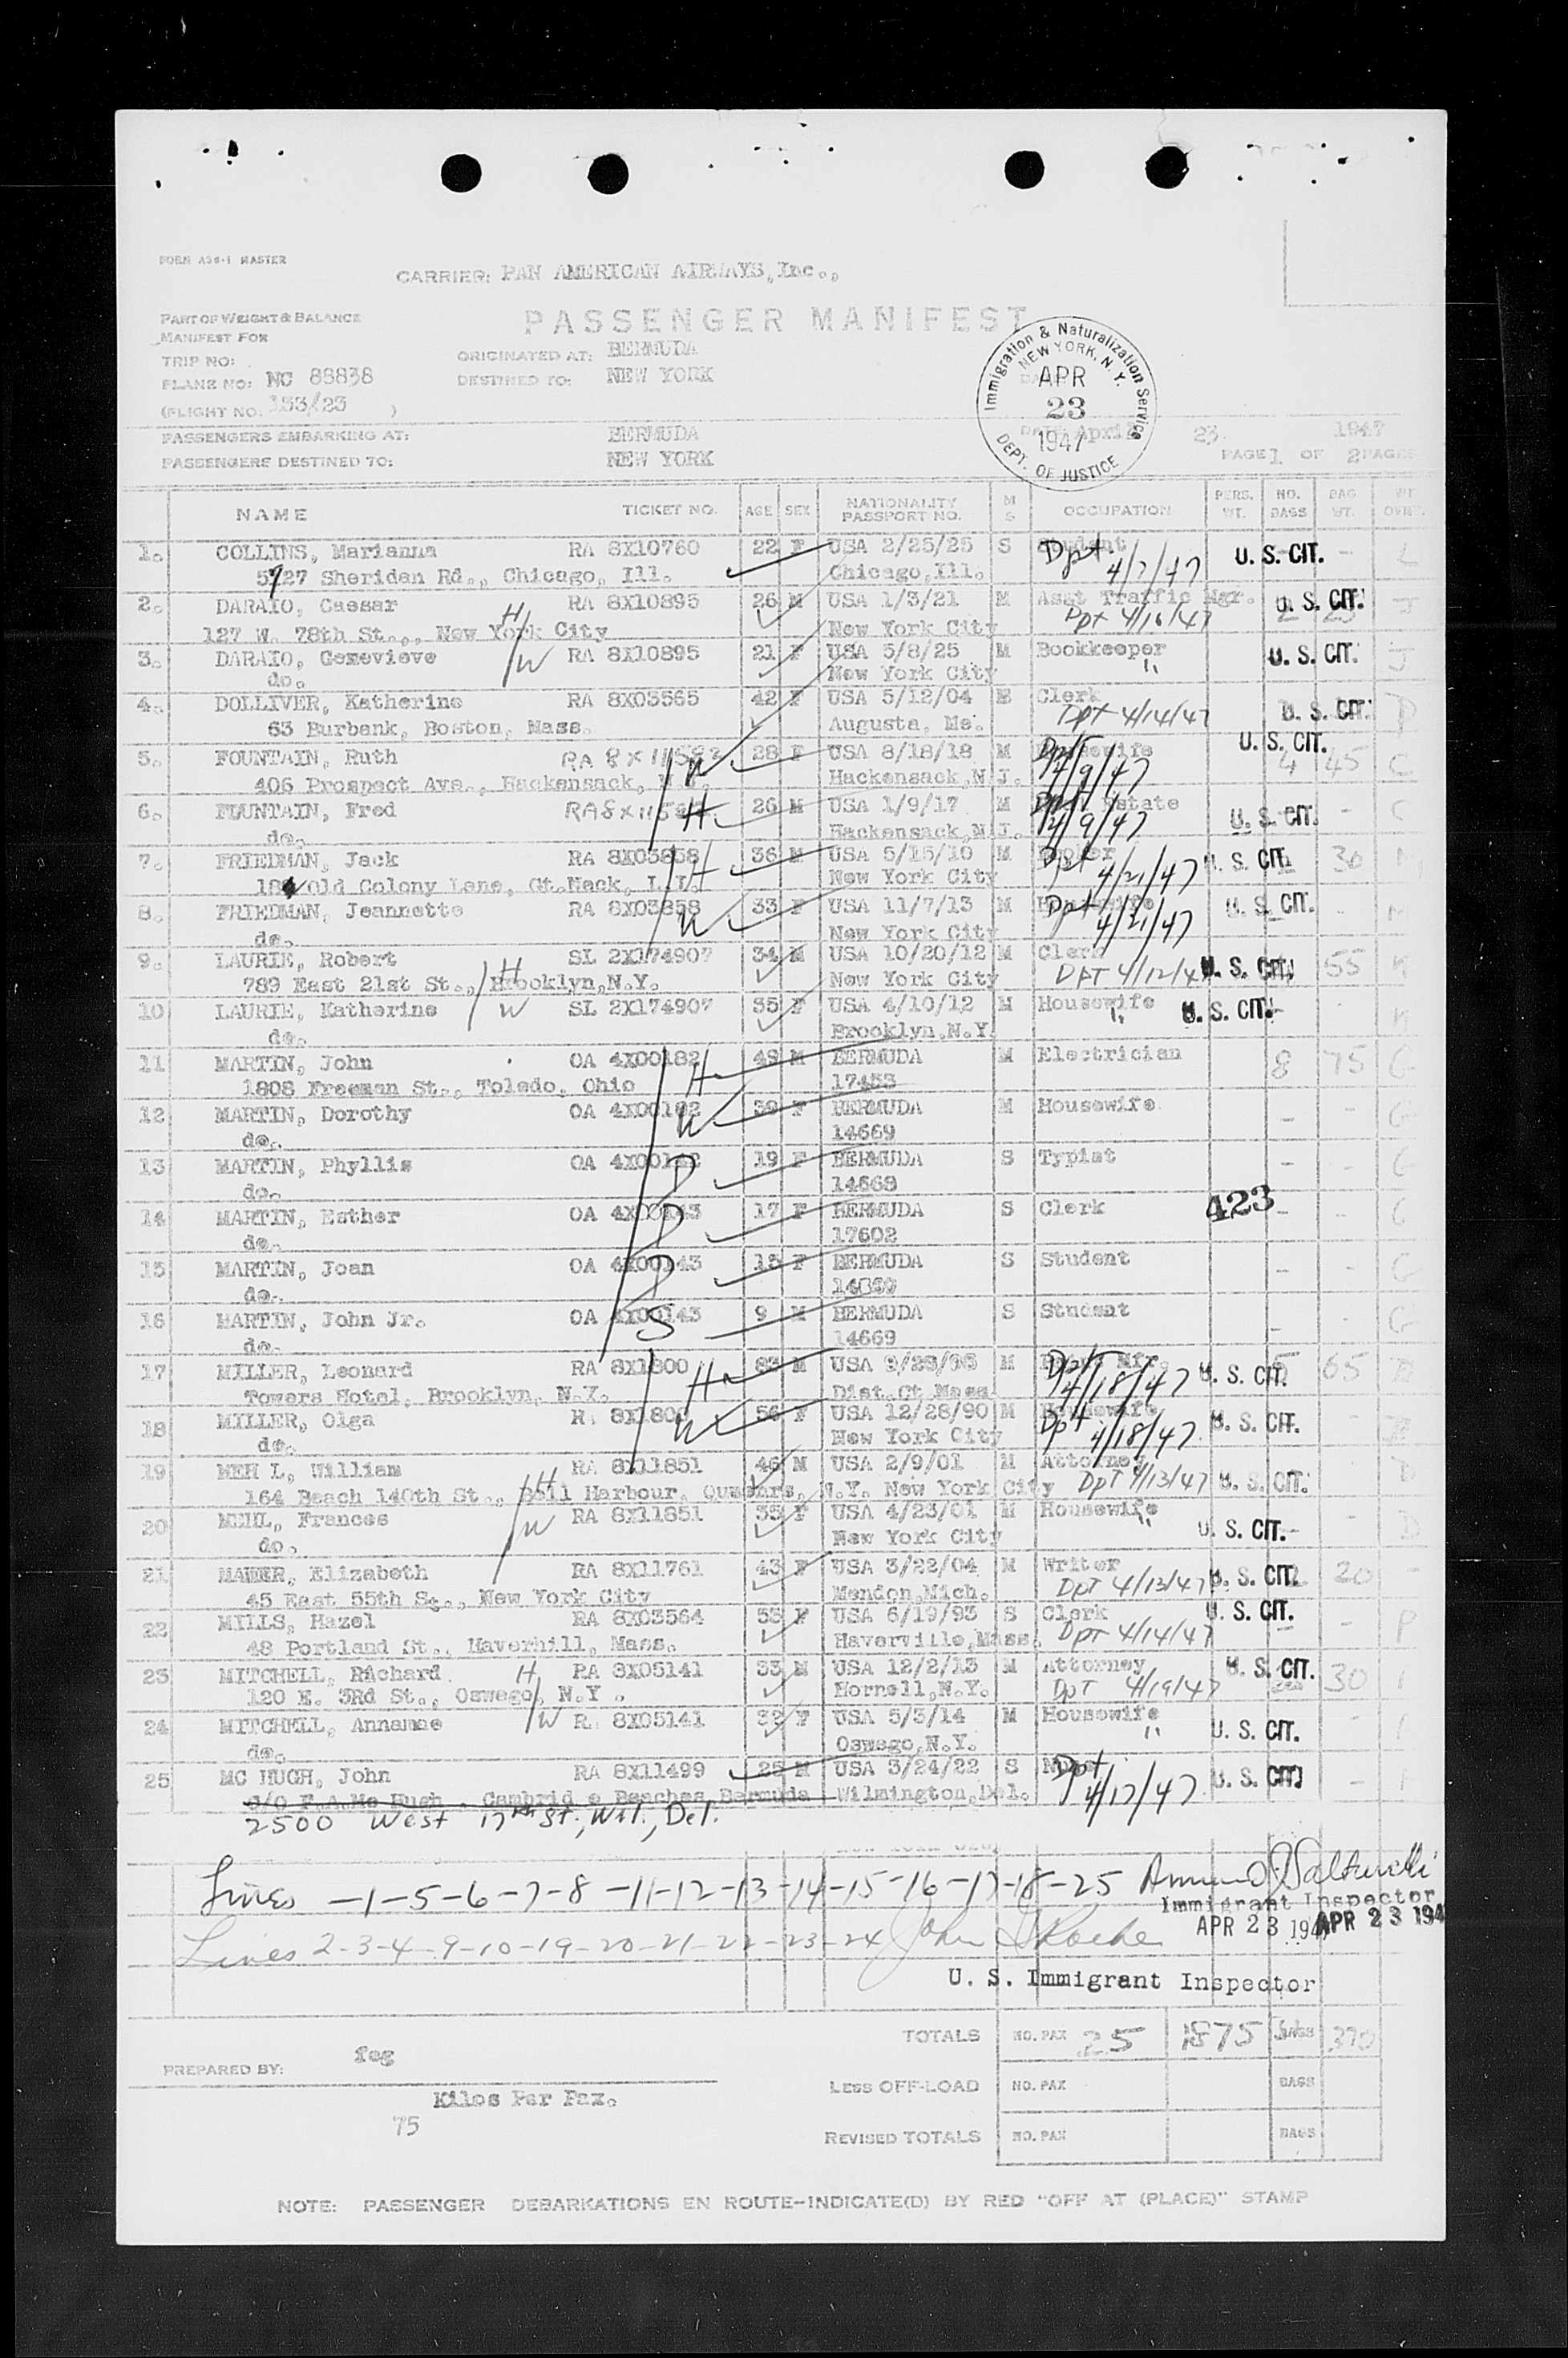 FORM A38-1 MASTER
CARRIER: PAN AMERICAN AIRWAYS, Inc.,
PART OF WEIGHT & BALANCE
MANIFEST FOR
PASSENGER MANIFEST
TRIP NO:
ORIGINATED AT: BERMUDA
PLANE NO: NC 88838
DESTINED TO: NEW YORK
(FLIGHT NO. 153/23 )
Immigration & Naturalization Service
NEW YORK, N. Y.
APR
23
1947
DEPT. OF JUSTICE
PASSENGERS EMBARKING AT: BERMUDA
DATE April 23. 1947
PASSENGERS DESTINED TO: NEW YORK
PAGE 1 OF 2 PAGES
NAME TICKET NO. AGE SEX NATIONALITY PASSPORT NO. M S OCCUPATION PERS. WT. NO. BAGS BAG. WT. WT OVR.
1. COLLINS, Marianna RA 8X10760 22 F USA 2/25/25 S Student U. S. CIT. - L
5727 Sheridan Rd., Chicago, Ill. Chicago, Ill. Dpt. 4/7/47
2. DARAIO, Caesar H RA 8X10895 26 M USA 1/3/21 M Asst Traffic Mgr. U. S. CIT. J
127 W. 78th St.,, New York City New York City Dpt 4/16/47
3. DARAIO, Genevieve W RA 8X10895 21 F USA 5/8/25 M Bookkeeper U. S. CIT. J
do. New York City "
4. DOLLIVER, Katherine RA 8X03565 42 F USA 5/12/04 Clerk U. S. CIT. D
63 Burbank, Boston, Mass. Augusta, Me. Dpt 4/14/47
5. FOUNTAIN, Ruth RA 8X11583 W 28 F USA 8/18/18 M Housewife U. S. CIT. 4 45 C
406 Prospect Ave., Hackensack, N.J. Hackensack, N.J. Dpt 4/9/47
6. FOUNTAIN, Fred H 26 M USA 1/9/17 M Estate U. S. CIT. - C
do. Hackensack, N.J. Dpt 4/9/47
7. FRIEDMAN, Jack RA 8X03858 H 36 M USA 5/15/10 M U. S. CIT. 30
Old Colony Lane, Gt. Neck, L.I. New York City Dpt 4/21/47
8. FRIEDMAN, Jeannette RA 8X03858 W 33 F USA 11/7/13 M Housewife U. S. CIT.
do. New York City Dpt 4/21/47
9. LAURIE, Robert SL 2X174907 34 M USA 10/20/12 M Clerk U. S. CIT. 55
789 East 21st St., Brooklyn, N.Y. H New York City DPT 4/12/47
10 LAURIE, Katherine W SL 2X174907 35 F USA 4/10/12 M Housewife U. S. CIT.
do. Brooklyn, N.Y. "
11 MARTIN, John OA 4X00182 H 49 M BERMUDA M Electrician 8 75 G
1808 Freeman St., Toledo, Ohio 17453
12 MARTIN, Dorothy OA 4X00182 W 39 F BERMUDA M Housewife - - G
do. 14669
13 MARTIN, Phyllis OA D 19 F BERMUDA S Typist - - G
do. 14668
14 MARTIN, Esther OA 4X00143 D 17 F BERMUDA S Clerk 423 - - G
do. 17602
15 MARTIN, Joan OA 4X00143 D 15 F BERMUDA S Student - - G
do.
16 MARTIN, John Jr. OA 4X00143 S 9 M BERMUDA S Student - - G
do. 14669
17 MILLER, Leonard RA 8X1800 H M USA M U. S. CIT. 65
Towers Hotel, Brooklyn, N.Y. Dist. Ct Mass Dpt 4/18/47
18 MILLER, Olga 8X1800 W 56 F USA 12/28/90 M Housewife U. S. CIT. -
do. New York City Dpt 4/18/47
19 MEH L, William H RA 8X11851 46 M USA 2/9/01 M Attorney U. S. CIT. D
164 Beach 140th St., Bell Harbour, N.Y. New York City DpT 4/13/47
20 MEHL, Frances W RA 8X11851 35 F USA 4/23/01 M Housewife U. S. CIT. - D
do. New York City "
21 Elizabeth RA 8X11761 43 F USA 3/22/04 M Writer U. S. CIT. 20 -
45 East 55th St., New York City Mendon, Mich. DpT 4/13/47
22 MILLS, Hazel RA 8X03564 53 F USA 6/19/93 S Clerk U. S. CIT. - P
48 Portland St., Haverhill, Mass. Haverville, Mass. Dpt 4/14/47
23 MITCHELL, Richard H RA 8X05141 33 M USA 12/2/13 M Attorney U. S. CIT. 30
120 E. 3Rd St., Oswego, N.Y . Hornell, N.Y. DpT 4/19/47
24 MITCHELL, Annamae W 8X05141 32 F USA 5/3/14 M Housewife U. S. CIT. -
do. Oswego, N.Y. "
25 MC HUGH, John RA 8X11499 25 M USA 3/24/22 S U. S. CIT. -
c/o F.A.Mc Hugh . Cambrid e Beaches, Bermuda Wilmington, Del. Dpt 4/17/47
2500 West 17th St., Wil., Del.
Lines -1-5-6-7-8-11-12-13-14-15-16-17-18-25
Immigrant Inspector
APR 23 1947 APR 23 194
Lines 2-3-4-9-10-19-20-21-22-23-24 John Roche
U. S. Immigrant Inspector
TOTALS NO. PAX 25 1875 BAGS 370
PREPARED BY: feg
LESS OFF-LOAD NO. PAX BAGS
Kilos Per Pax.
75
REVISED TOTALS NO. PAX BAGS
NOTE: PASSENGER DEBARKATIONS EN ROUTE-INDICATE(D) BY RED "OFF AT (PLACE)" STAMP